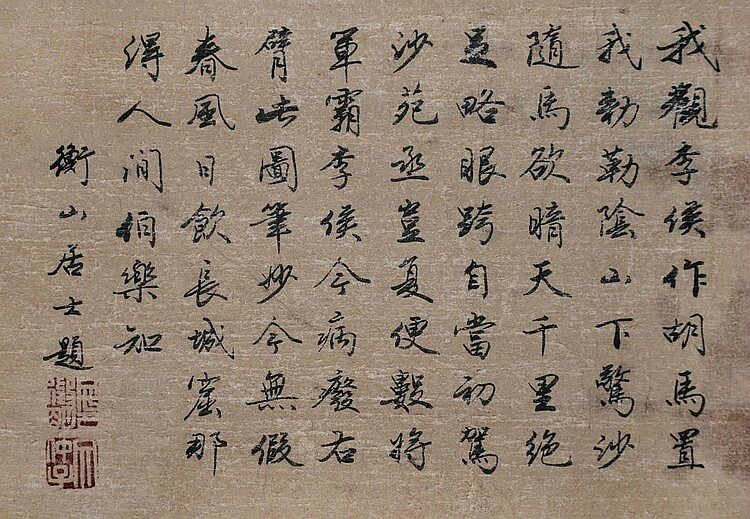 我觀李侯作胡馬置
我勅勒陰山下驚沙
隨馬欲暗天千里絕
足略眼跨自當初駕
沙苑丞豈复便數將
軍霸李侯今病廢右
臂此圖筆妙今無假
春風日飲長城窟那
得人間伯樂知
衡山居士題